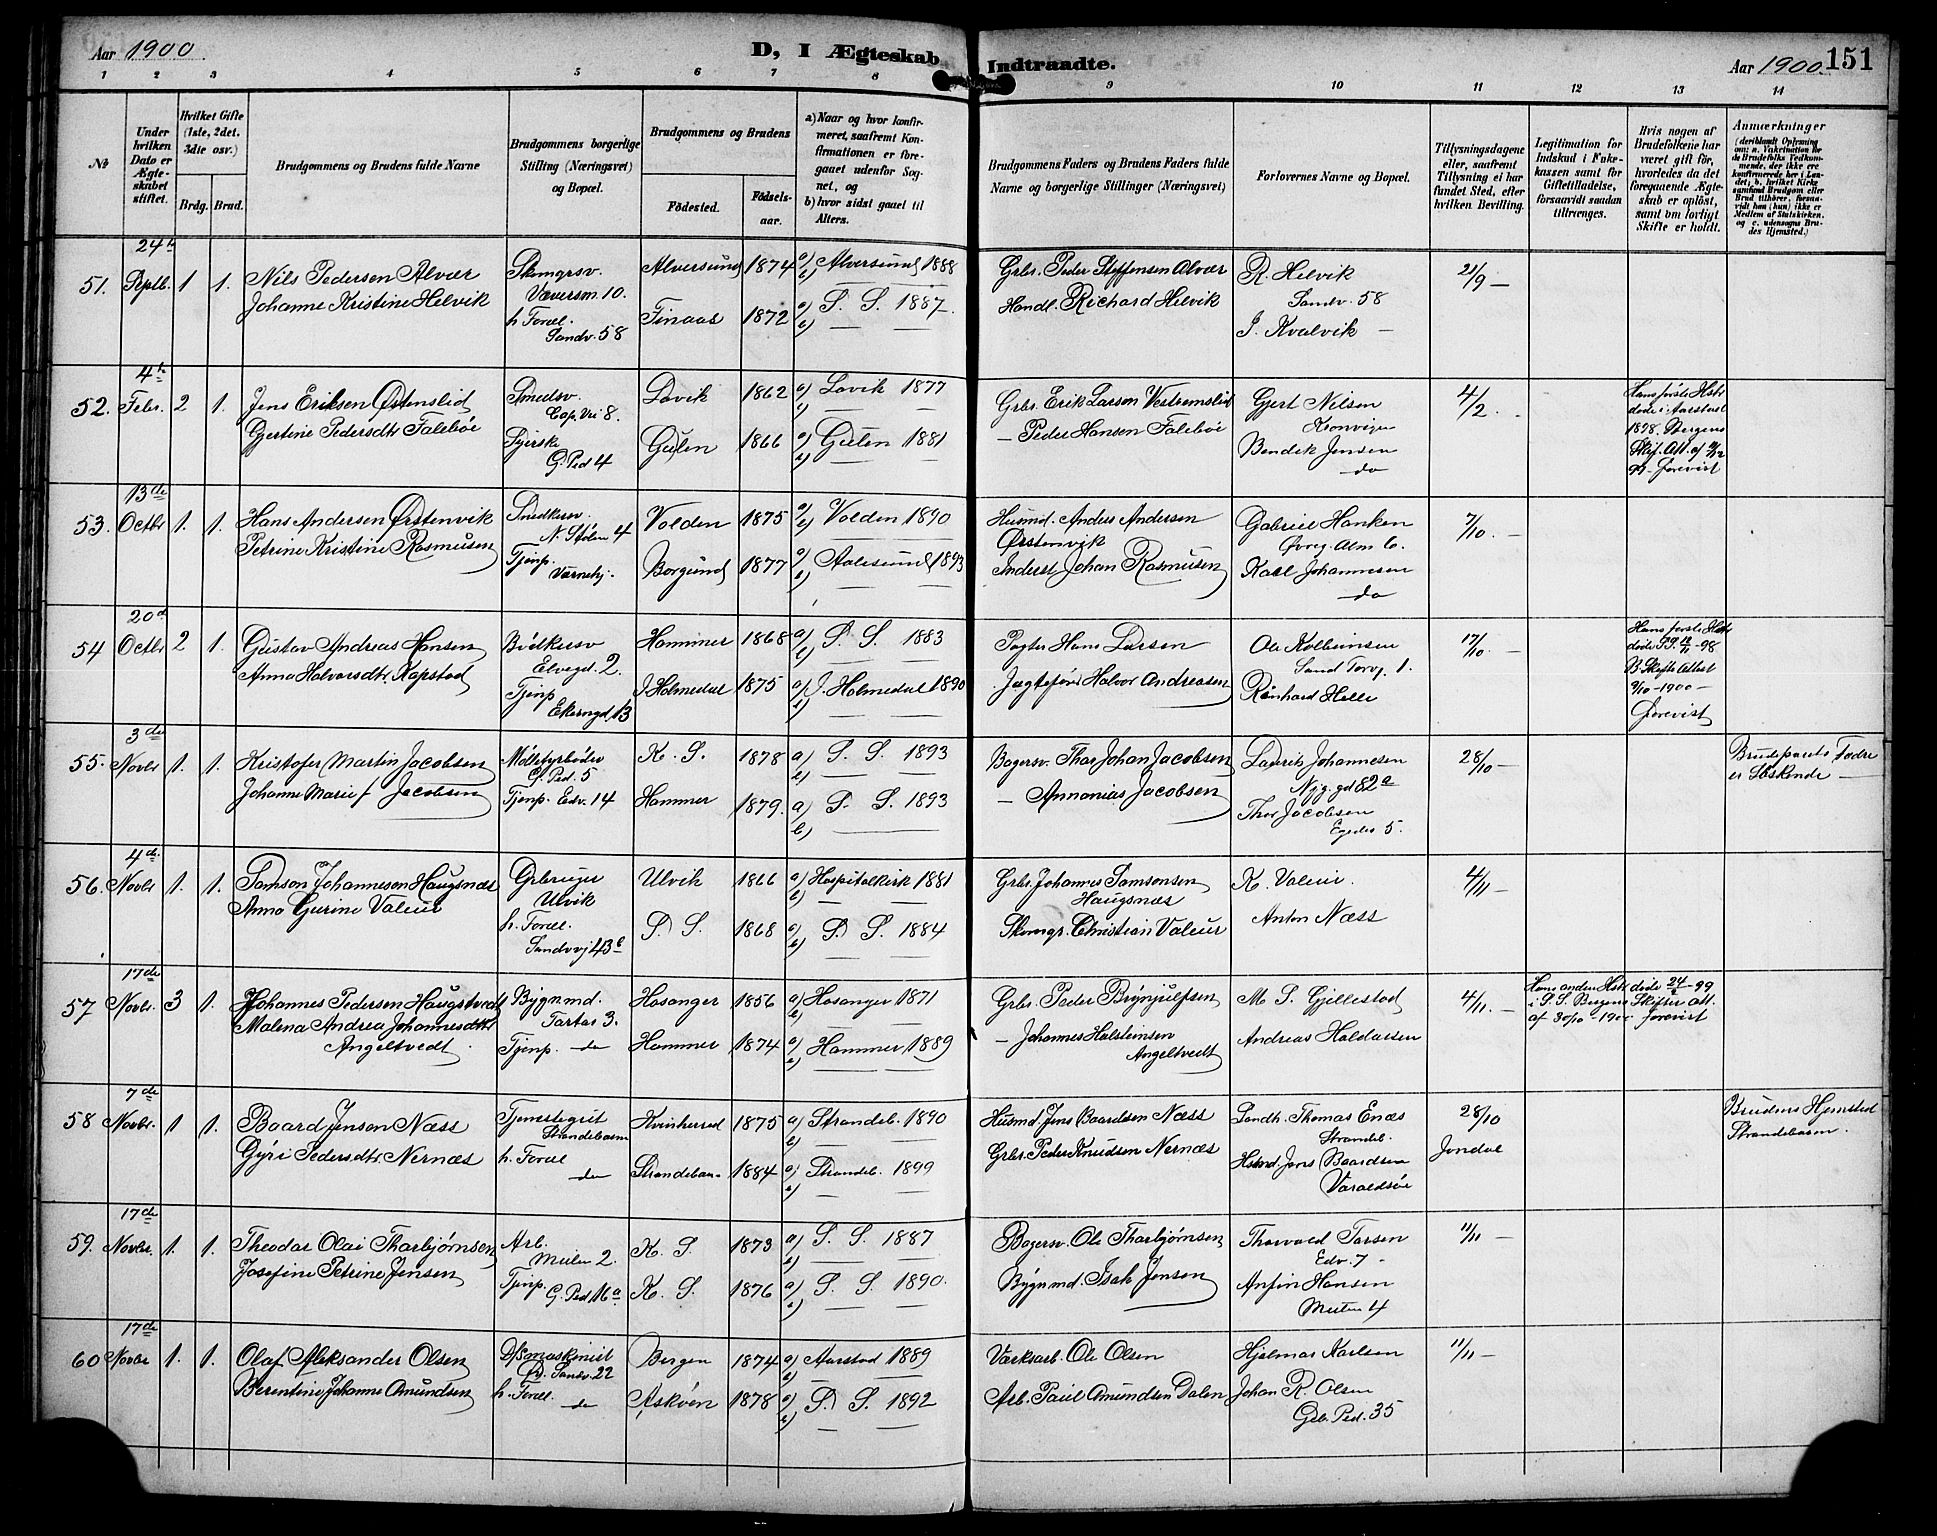 Aar 1900
D, I Ægteskab
Indtraadte.
Aar 1900.
151
1 2 3 4 5 6 7 8 9 10 11 12 13 14
No
Under
hvilken
Dato er
Ægte-
skabet
stiftet.
Hvilket Gifte
(1ste, 2det.
3die osv.)
Brdg. Brud.
Brudgommens og Brudens fulde Navne
Brudgommens borgerlige
Stilling (Næringsvei)
og Bopæl.
Brudgommens og Brudens
Fødested.
Fødsels-
aar.
a) Naar og hvor konfir-
meret, saafremt Kon-
firmationen er fore-
gaaet udenfor Sog-
net, og
b) hvor sidst gaaet til
Alters.
Brudgommens Faders og Brudens Faders fulde
Navne og borgerlige Stillinger (Næringsvei)
Forlovernes Navne og Bopæl.
Tillysningsdagene
eller, saafremt
Tillysning ei har
fundet Sted, efter
hvilken Bevilling.
Legitimation for
Indskud i Enke-
kassen samt for
Giftetilladelse,
forsaavidt saadan
tiltrænges.
Hvis nogen af
Brudefolkene har
været gift før,
hvorledes da det
foregaaende Ægte-
skab er opløst,
samt om lovligt
Skifte er holdt.
Anmærkninger
(deriblandt Oplysning
om: a. Vakcination for
de Brudefolks Vedkom-
mende, der ikke ere
konfirmerede her i Lan-
det, b. hvilket Kirke-
samfund Brudgom eller
Brud tilhører, forsaa-
vidt han (hun) ikke er
Medlem af Statskirken,
og c. udensogns Bru-
des Hjemsted.)
51. 24h Septb. 1 1.
Nils Pedersen Alvær
Johanne Kristine Helvik
Skomgrsv.
Væversm. 10.
h. Foræl.
Sandv. 58
Alversund 1874 a) Alversund 1888
b)
Finaas 1872 a) S. S. 1887.
b) — —
Grbr. Peder Steffensen Alvær
Handl. Richard Helvik
R. Helvik
Sandv. 58
J. Kvalvik —
21/9 —
52. 4h Febr. 2 1.
Jens Eriksen Østenslid
Gjertine Pedersdtr. Falebøe
Smedsv.
Cop. Vei 8.
Syerske
G. Ped 4
Lavik 1862 a) Lavik 1877
b) — —
Gulen 1866 a) Gulen 1881
b) — —
Grbr. Erik Larsen Vestremslid
— Peder Hansen Falebøe
Gjert Nilsen
Kronvigen
Bendik Jensen
do
4/2 —
Hans første Hstr
døde i Aarstad
1898. Bergens
Skif. Att. af
Forevist
53. 13de Octbr 1. 1.
Hans Andersen Ørstenvik
Petrine Kristine Rasmusen
Snedkersv.
N. Stølen 4
Tjenp.
Værnehj.
Volden 1875 a) Volden 1890
b) — —
Borgund 1877 a) Aalesund 1893
b) — —
Husmd. Anders Andersen
Ørstenvik
Inderst Johan Rasmusen
Gabriel Hanken
Øvreg. Alm 6.
Karl Johannesen
do
7/10 —
54 20d Octbr 2 1.
Gustav Andreas Hansen
Anna Halvorsdtr. Kapstad
Bødkersv
Elvegd. 2.
Tjenp
Ekerngd. 13
Hammer 1868 a) S. S. 1883
b) — —
I. Holmedal 1875 a) I. Holmedal 1890
b) — —
Pagter Hans Larsen
Jægtefører Halvor Andreasen
Ole Kolbeinsen
Sand Torvg 1.
Reinhard Helle
17/10 —
Hans første Hstr
døde S. S.
98
B. Skifte Attest
9/10 - 1900 —
Forevist
55. 3de Novbr 1. 1.
Kristofer Martin Jacobsen
Johanne Marie f Jacobsen
G. Ped. 5
Tjenp. Edv. 14
K. S. 1878 a) S. S. 1893
b) — —
Hammer 1879. a) S. S. 1893
b) — —
Bagersv. Thor Johan Jacobsen
— Annanias Jacobsen
Lauritz Johannesen
Nyg. gd 82a
Thor Jacobsen
Egedes 5.
28/10 —
Brudeparets Fædre
er Søskende —
56. 4de Novbr 1. 1.
Samson Johannesen Haugsnæs
Anna Gurine Valeur
Grbruger
Ulvik
h. Foræl.
Sandvvj 43c
Ulvik 1866 a) Hospitalkirk 1881
b) — —
S. S. 1868 a) S. S. 1884
b) — —
Grbr. Johannes Samsonsen
Haugsnæs
Skomgr. Christian Valeur
K. Valeur.
Anton Næss
4/11 —
57 17de Novbr. 3 1.
Johannes Pedersen Haugstvedt
Malena Andrea Johannesdtr.
Angeltvedt
Bygnmd.
Tartar 3.
Tjenp. — do
Hosanger 1856 a) Hosanger 1871
b) — —
Hammer 1874 a) Hammer 1889
b) — —
Grbr. Peder Brynjulfsen
— Johannes Halsteinsen
Angeltvedt
M. S. Gjellestad
Andreas Haldorsen
4/11. —
Hans anden Hstr døde 24/2 - 99
i S. S. Bergens Skifter att.
af 30/10 - 1900 forevist
58 7de Novbr. 1 1.
Baard Jensen Næss
Gyri Pedersdtr. Nernæs
Tjenestegut
Strandebarm
h. Foræl
do
Kvinherred 1875 a) Strandeb. 1890
b) — —
Strandebar- 1884 a) Strandeb. 1899
b) — —
Husmd. Jens Baardsen Næss
Grbr. Peder Knudsen Nernæs
Landh. Thomas Enæs
Strandeb.
Hsmd Jens Baardsen
Varaldsøe
28/10
Jondal
Brudens Hjemsted
Strandebarm.
59. 17de Novbr. 1. 1.
Theodor Olai Tharbjørnsen
Josefine Petrine Jensen
Arb.
Mulen 2.
Tjenp.
G. Ped 16a
K. S 1873 a) S. S. 1887
b) — —
K. S. 1876 a) S. S. 1890.
b) — —
Bagersv. Ole Tharbjørnsen
Bygnmd. Isak Jensen
Thorvald Larsen
Edv. 7 -
Anfin Hansen
Mulen 4
11/11 —
60 17de Novbr 1. 1.
Olaf Aleksander Olsen
Berentine Johanne Amundsen
D/Smaskinist
Ø. Sandv. 22
h. Foræl.
do
Bergen 1874 a) Aarstad 1889
b) — —
Askøen 1878 a) S. S. 1892
b) — —
Værksarb. Ole Olsen
Arb. Paul Amundsen Dalen
Hjelmar Karlsen
Johan R. Olsen
Geb. Ped. 35
11/11 —